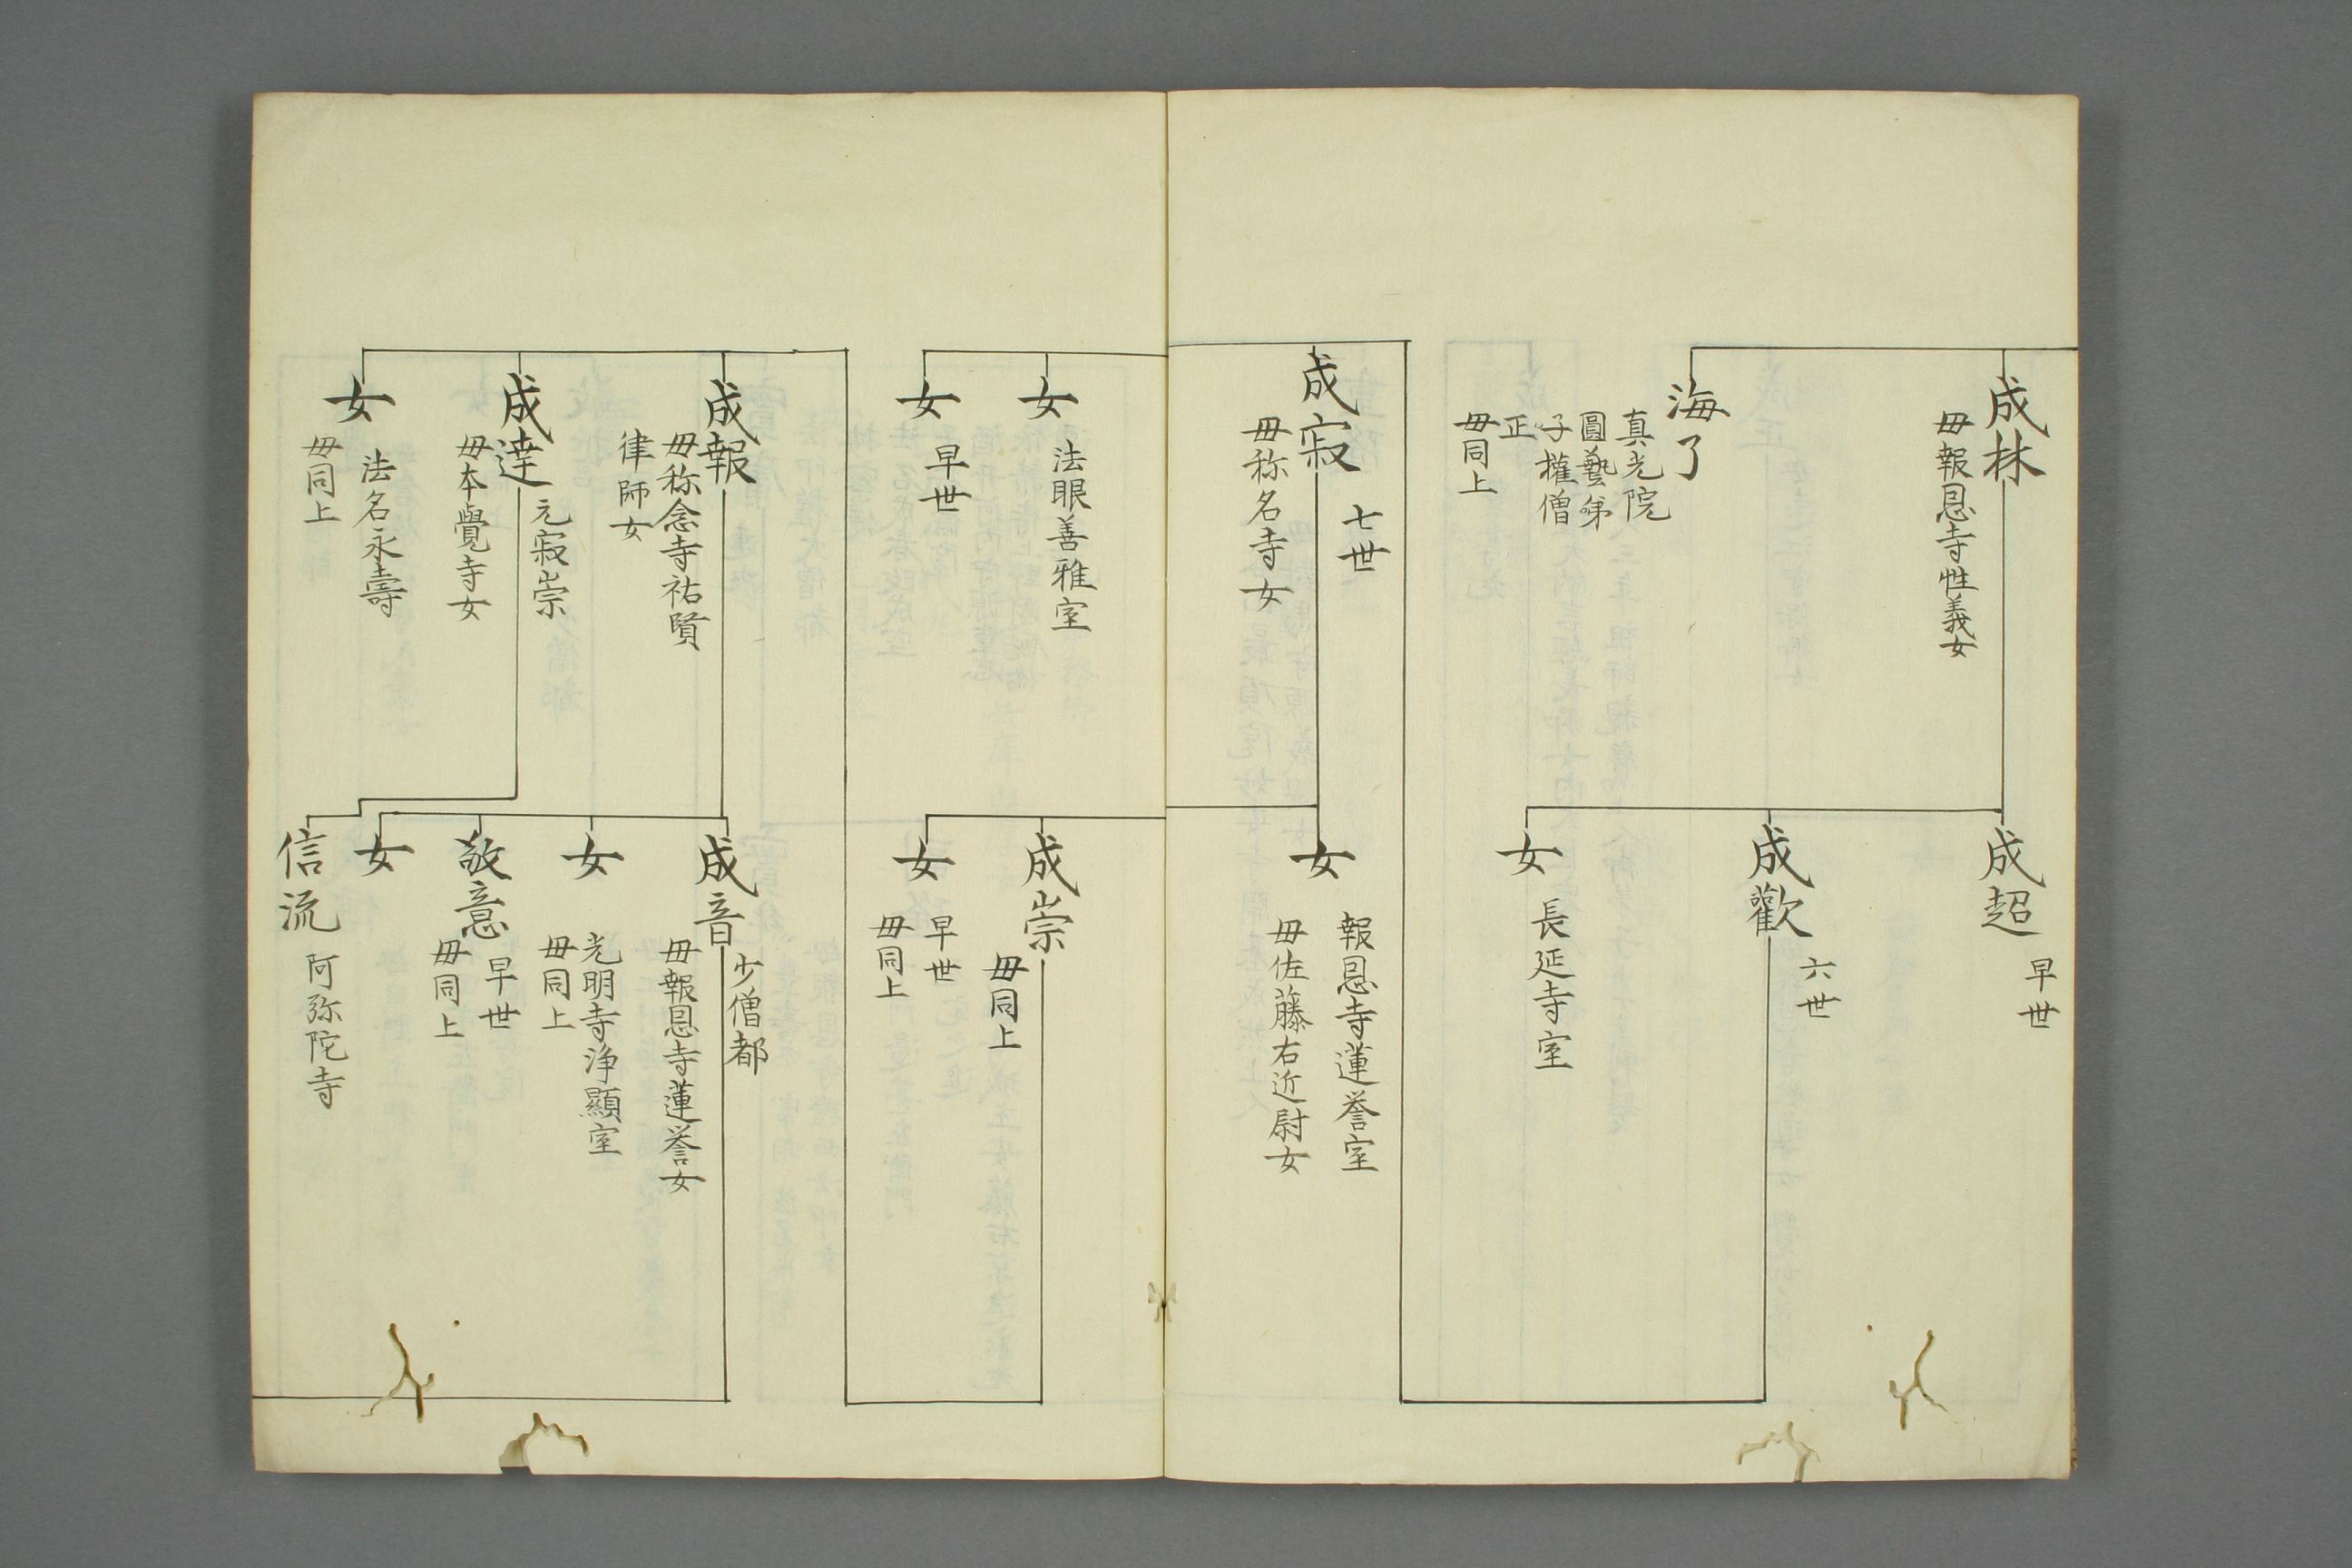 成林
毋報恩寺性義女
海了
真光院
圓藝弟
子權僧
正
毋同上
成超
早世
成歡
六世
女
長延寺室
成寂
七世
毋称名寺女
女
報恩寺蓮誉室
毋佐藤右近尉女
女
法眼善雅室
女
早世
成崇
毋同上
女
早世
毋同上
成報
毋称念寺祐賢
律師女
成達
元寂崇
毋本覺寺女
女
法名永壽
毋同上
成音
少僧都
毋報恩寺蓮誉女
女
光明寺浄顯室
毋同上
敬意
早世
毋同上
女
信流
阿弥陀寺